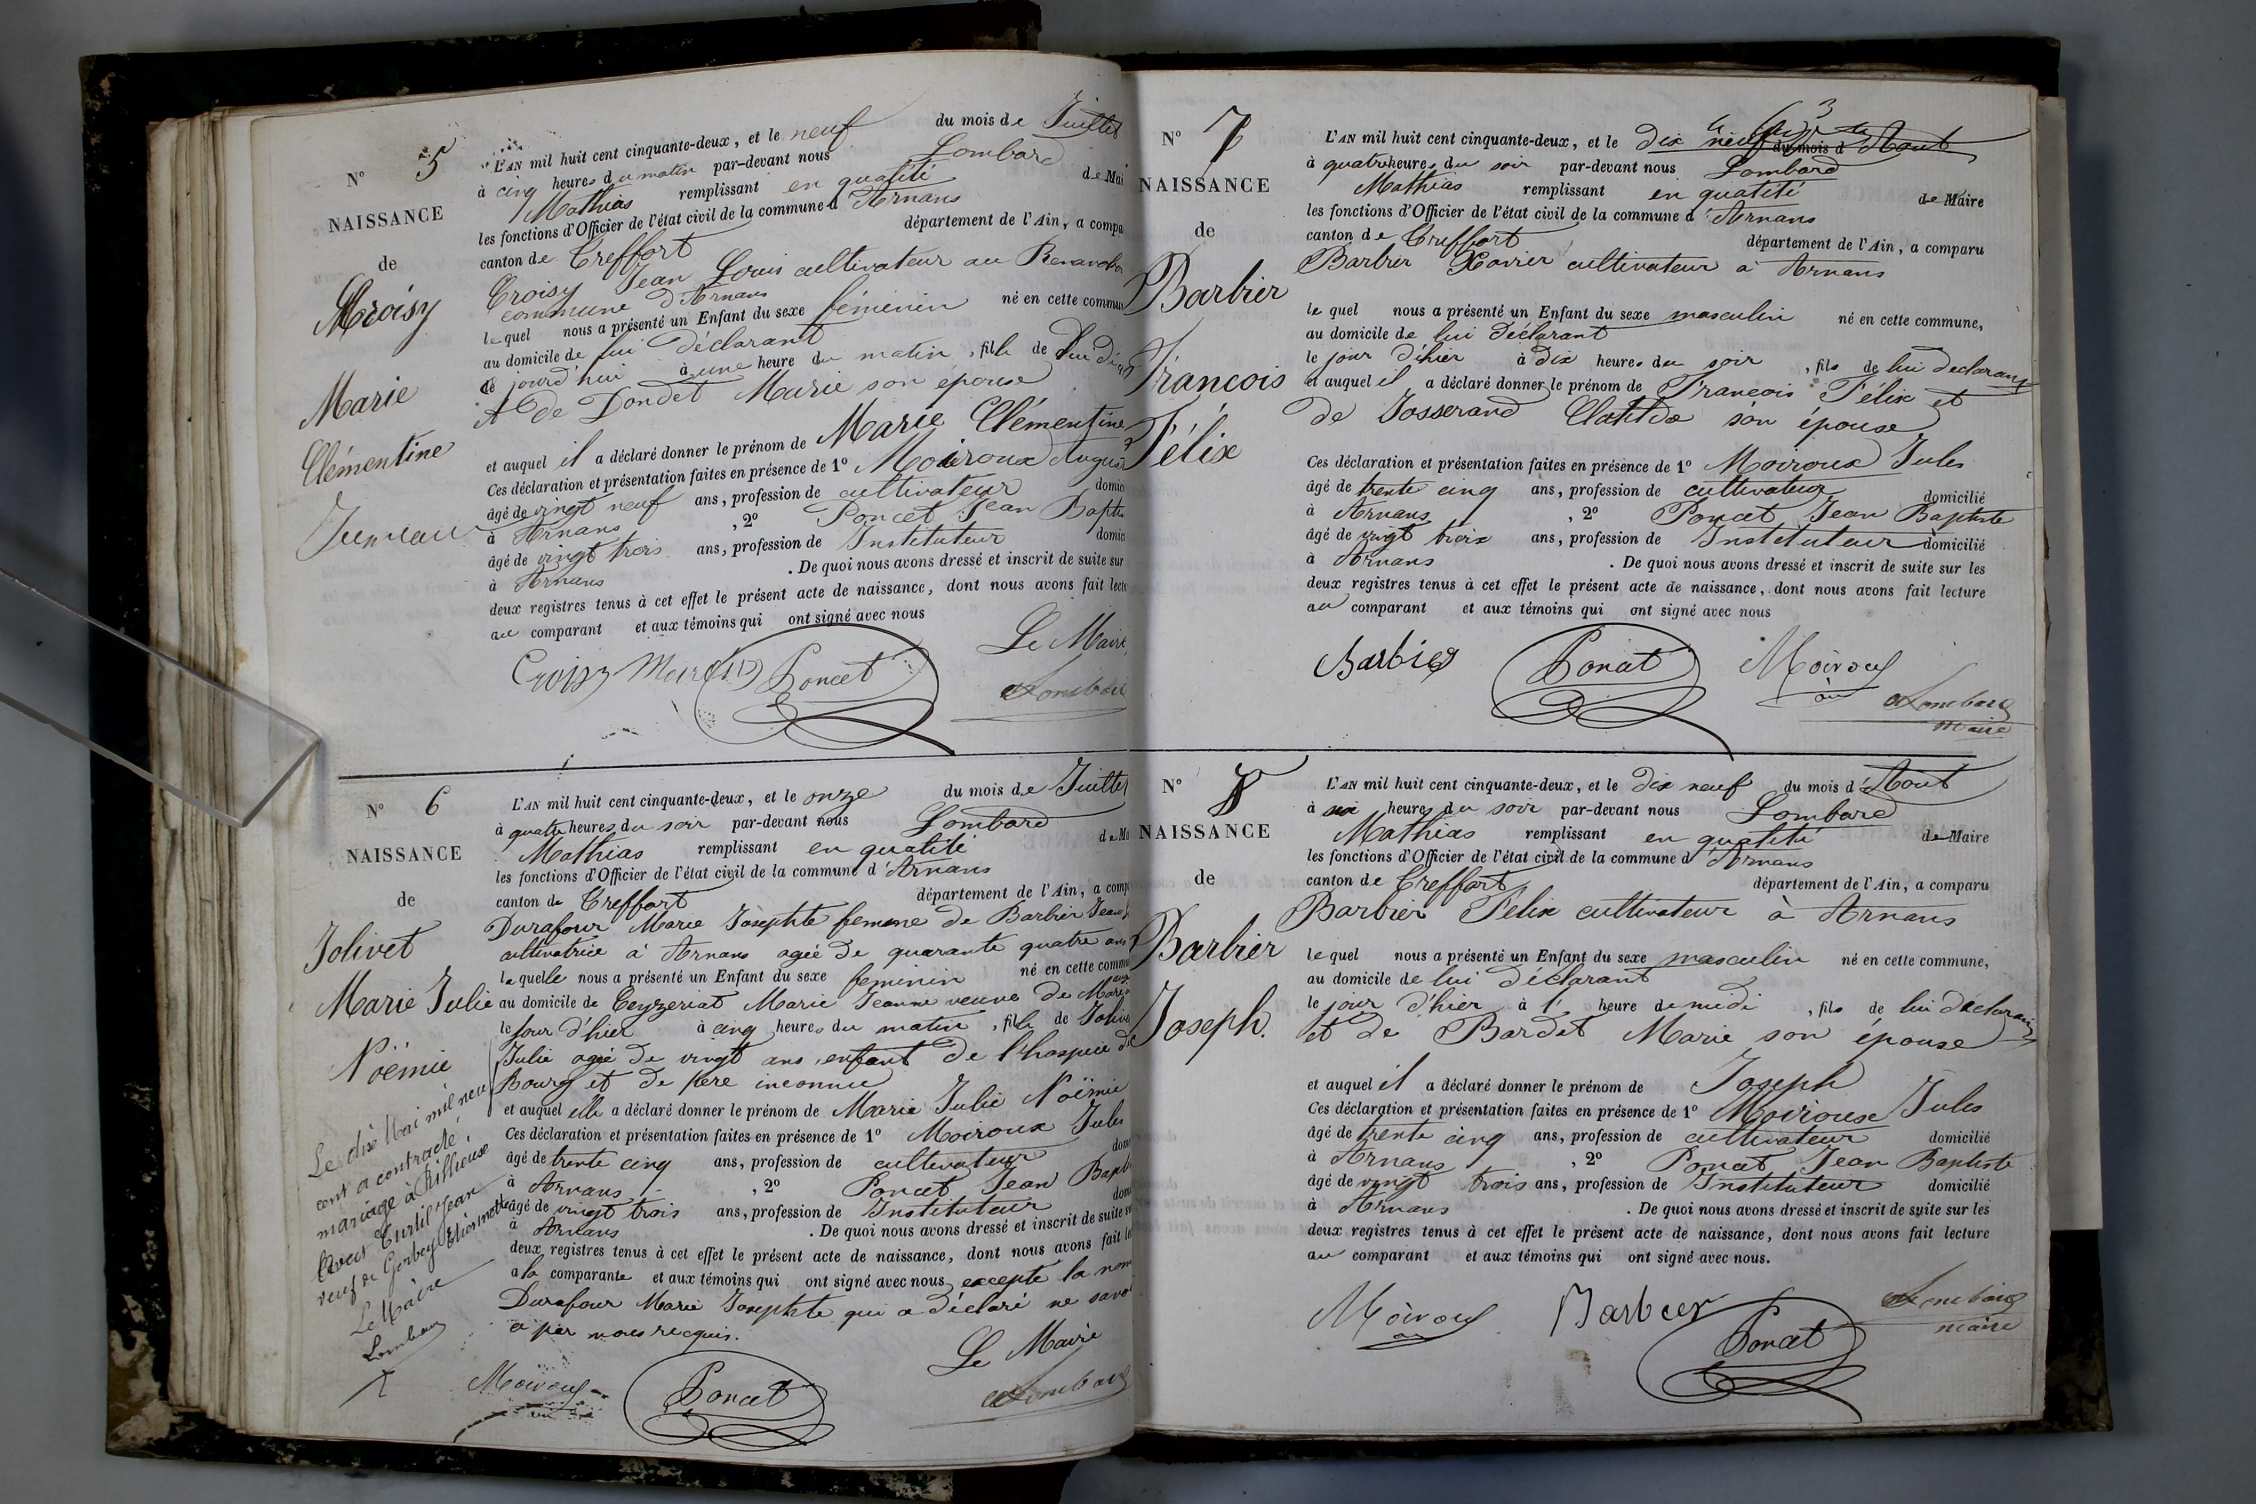 N° 5
NAISSANCE
de
Croisy
Marie
Clémentine
Jumeau
L'AN mil huit cent cinquante-deux, et le neuf du mois de Juillet
à cinq heures du matin par-devant nous Lombard
Mathias remplissant en qualité de Mai
les fonctions d'Officier de l'état civil de la commune d'Arnans
canton de Treffort département de l'Ain, a compa
Croisy Jean Louis cultivateur au
commune d'Arnans
lequel nous a présenté un Enfant du sexe féminin né en cette commun
au domicile de lui déclarant
ce jourd'hui à une heure du matin, fille de lui
et de Dondet Marie son épouse
et auquel il a déclaré donner le prénom de Marie Clémentine
Ces déclaration et présentation faites en présence de 1° Moiroux August
âgé de vingt neuf ans, profession de cultivateur domic
à Arnans, 2° Poncet Jean Bapt
âgé de vingt trois ans, profession de Instituteur domic
à Arnans. De quoi nous avons dressé et inscrit de suite sur
deux registres tenus à cet effet le présent acte de naissance, dont nous avons fait lect
au comparant et aux témoins qui ont signé avec nous
Le Maire,
Croisy Poncet Lombard
N° 6
NAISSANCE
de
Jolivet
Marie Julie
Noëmie
L'AN mil huit cent cinquante-deux, et le onze du mois de Juillet
à quatre heures du soir par-devant nous Lombard
Mathias remplissant en qualité de Ma
les fonctions d'Officier de l'état civil de la commune d'Arnans
canton de Treffort département de l'Ain, a comp
Durafour Marie Josephte femme de Barbier Jean
cultivatrice à Arnans agée de quarante quatre ans
laquelle nous a présenté un Enfant du sexe feminin né en cette commu
au domicile de Ceyzeriat Marie Jeanne veuve de
le jour d'hier à cinq heures du matin, fille de Jolive
Julie agée de vingt ans enfant de l'hospice de
Bourg et de père inconnu
et auquel elle a déclaré donner le prénom de Marie Julie Noëmie
Ces déclaration et présentation faites en présence de 1° Moiroux Jules
âgé de trente cinq ans, profession de cultivateur dom
à Arnans, 2° Poncet Jean Bapt
âgé de vingt trois ans, profession de Instituteur dom
à Arnans. De quoi nous avons dressé et inscrit de suite su
deux registres tenus à cet effet le présent acte de naissance, dont nous avons fait le
à la comparante et aux témoins qui ont signé avec nous excepté la nom
Durafour Marie Josephte qui a déclaré ne savo
a par nous requis.
Le Maire
Moiroux Poncet Lombard
Le dix Mai mil neuf
cent a contracté
mariage à Rillieux
avec Curtil Jean
veuf de Gerbey Etiennette
Le Maire
Lombard
3
N° 7
NAISSANCE
de
Barbier
François
Félix
L'AN mil huit cent cinquante-deux, et le dix neuf du mois d'Aout
à quatre heures du soir par-devant nous Lombard
Mathias remplissant en qualité de Maire
les fonctions d'Officier de l'état civil de la commune d'Arnans
canton de Treffort département de l'Ain, a comparu
Barbier Xavier cultivateur à Arnans
lequel nous a présenté un Enfant du sexe masculin né en cette commune,
au domicile de lui déclarant
le jour d'hier à dix heures du soir, fils de lui declarant
et auquel il a déclaré donner le prénom de François Félix et
de Josserand Clotilde son épouse
Ces déclaration et présentation faites en présence de 1° Moiroux Jules
âgé de trente cinq ans, profession de cultivateur domicilié
à Arnans, 2° Poncet Jean Baptiste
âgé de vingt trois ans, profession de Instituteur domicilié
à Arnans. De quoi nous avons dressé et inscrit de suite sur les
deux registres tenus à cet effet le présent acte de naissance, dont nous avons fait lecture
au comparant et aux témoins qui ont signé avec nous
Barbier Poncet Moiroux Lombard
maire
N° 8
NAISSANCE
de
Barbier
Joseph.
L'AN mil huit cent cinquante-deux, et le dix neuf du mois d'Aout
à six heures du soir par-devant nous Lombard
Mathias remplissant en qualité de Maire
les fonctions d'Officier de l'état civil de la commune d'Arnans
canton de Treffort département de l'Ain, a comparu
Barbier Félix cultivateur à Arnans
lequel nous a présenté un Enfant du sexe masculin né en cette commune,
au domicile de lui déclarant
le jour d'hier à 1 heure de midi, fils de lui déclarant
et de Bardet Marie son épouse
et auquel il a déclaré donner le prénom de Joseph
Ces déclaration et présentation faites en présence de 1° Moiroux Jules
âgé de trente cinq ans, profession de cultivateur domicilié
à Arnans, 2° Poncet Jean Baptiste
âgé de vingt trois ans, profession de Instituteur domicilié
à Arnans. De quoi nous avons dressé et inscrit de suite sur les
deux registres tenus à cet effet le présent acte de naissance, dont nous avons fait lecture
au comparant et aux témoins qui ont signé avec nous.
Moiroux Barbier Poncet Lombard
maire